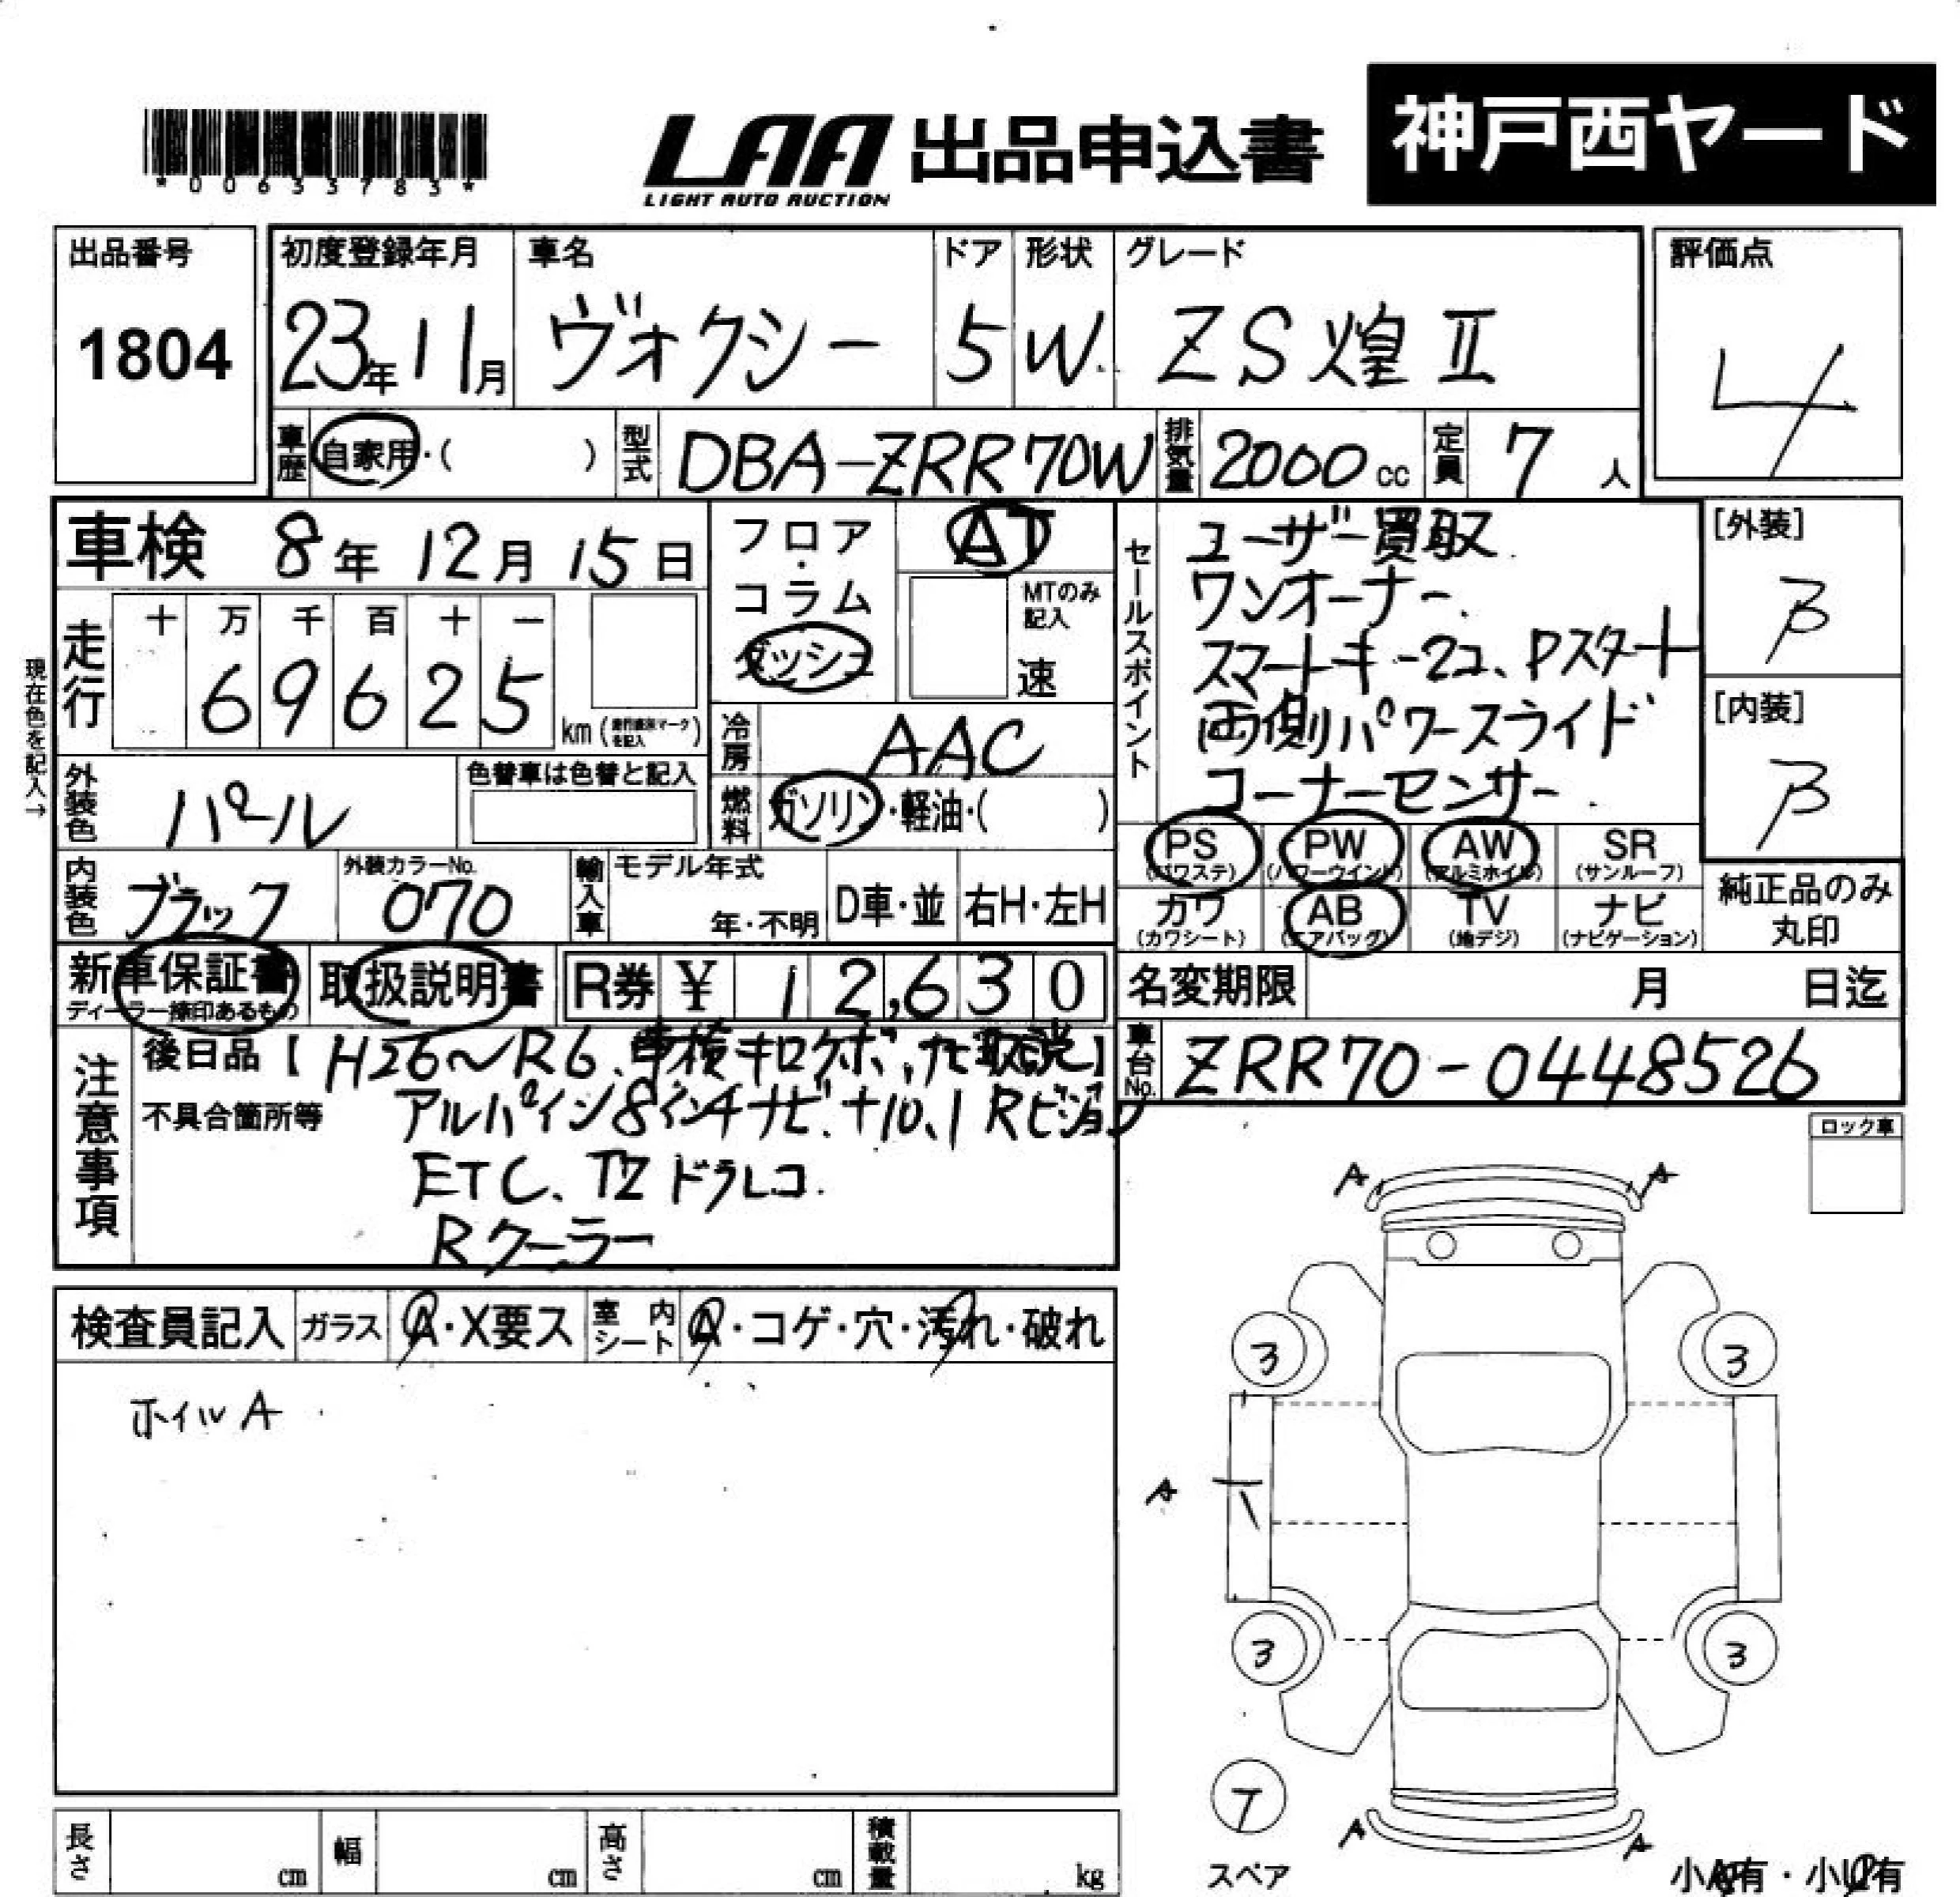 *00633783*
LAA 出品申込書
LIGHT AUTO AUCTION
神戸西ヤード
出品番号
1804
初度登録年月
23年11月
車名
ヴォクシー
ドア
5
形状
W
グレード
ZS煌Ⅱ
評価点
4
車歴
自家用・( )
型式
DBA-ZRR70W
排気量
2000cc
定員
7人
車検 8年12月15日
フロア・コラム
ダッシュ
AT
MTのみ記入
速
セールスポイント
ユーザー買取
ワンオーナー、
スマートキー2コ、Pスタート
両側パワースライド
コーナーセンサー
[外装]
B
[内装]
B
現在色を記入→
走行
十 万 千 百 十 一
69625
km (
を記入)
冷房
AAC
外装色
パール
色替車は色替と記入
燃料
ガソリン・軽油・( )
PS
(パワステ)
PW
(パワーウインド)
AW
(アルミホイル)
SR
(サンルーフ)
カワ
(カワシート)
AB
(エアバッグ)
TV
(地デジ)
ナビ
(ナビゲーション)
純正品のみ丸印
内装色
ブラック
外装カラーNo.
070
輸入車
モデル年式
年・不明
D車・並
右H・左H
新車保証書
ディーラー捺印あるもの
取扱説明書
R券 ¥ 12,630
名変期限 月 日迄
注意事項
後日品【H26〜R6、車検キロクボ、ナビ取説】
車台No.
ZRR70-0448526
不具合箇所等
アルパイン8インチナビ+10.1Rビジョン
ETC、TZドラレコ
Rクーラー
ロック車
A A
検査員記入
ガラス
A・X要ス
室内シート
A・コゲ・穴・汚れ・破れ
ホイルA
3 3
A
3 3
T
スペア
A A
長さ cm
幅 cm
高さ cm
積載量 kg
小A有・小U有